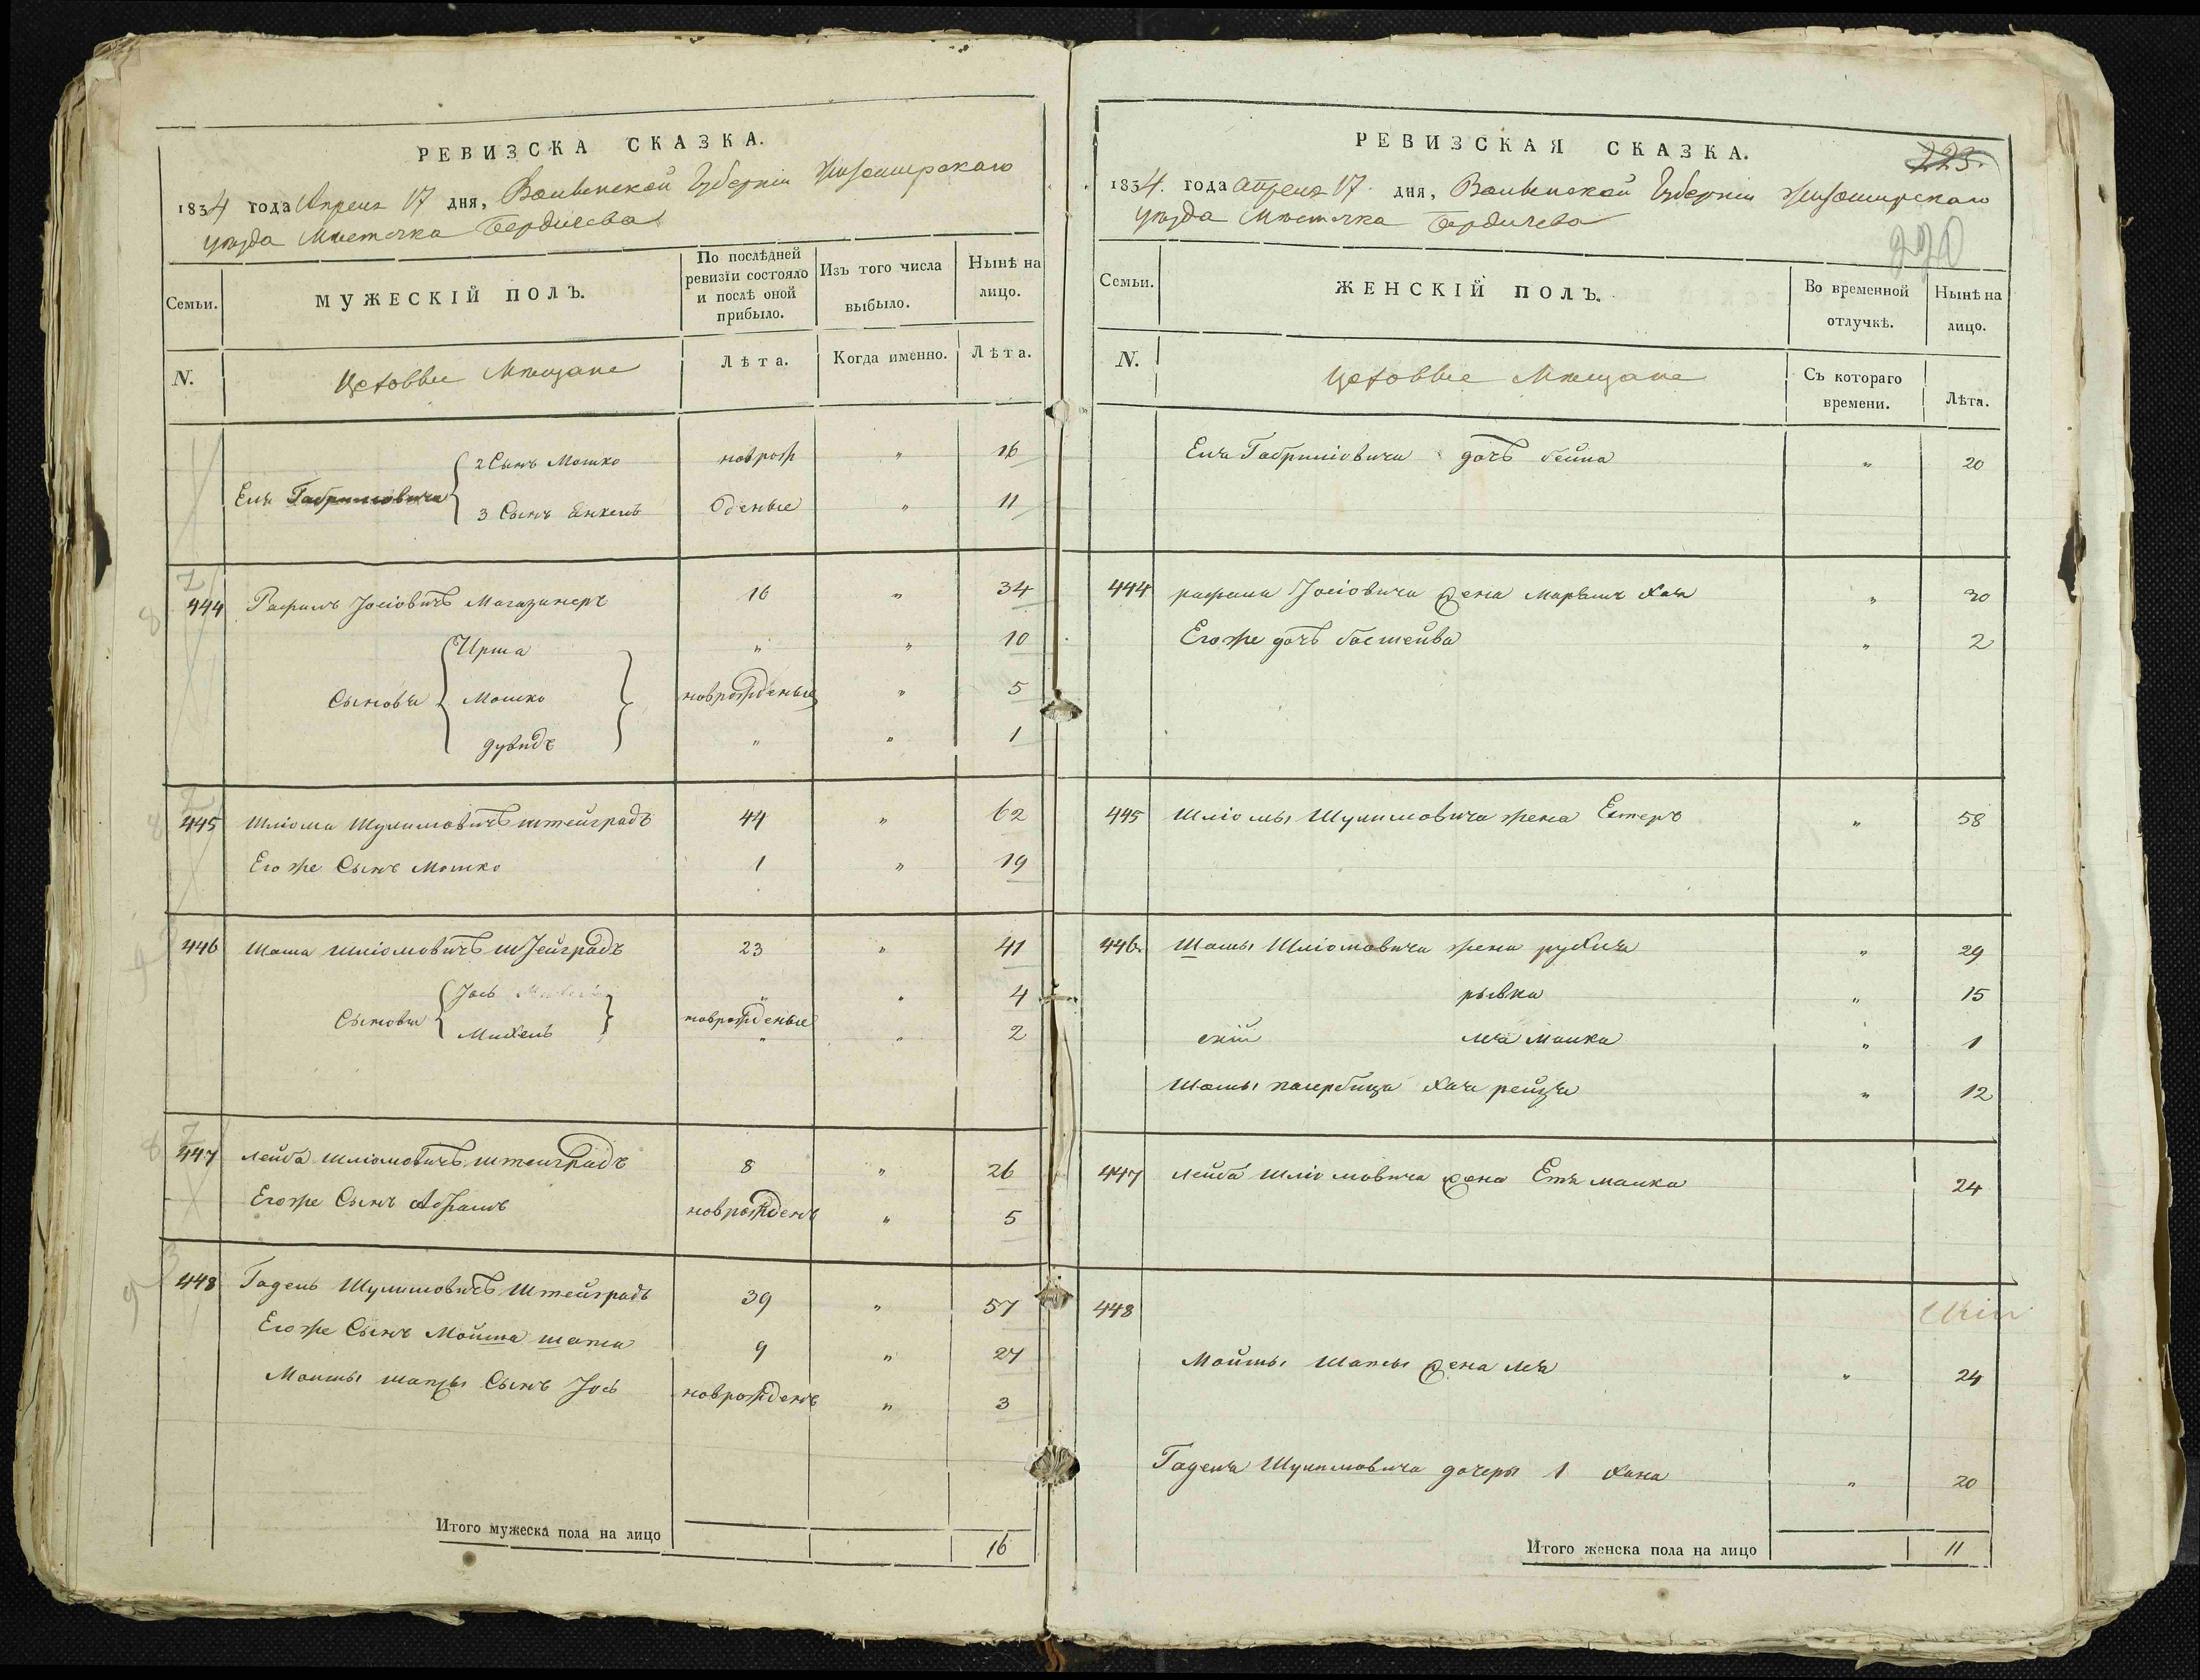 РЕВИЗСКА СКАЗКА.
1834 года Апреля 17 дня, Волынской Губернии Житомирскаго
уѣзда Мѣстечка Бердичева
Семьи.
МУЖЕСКІЙ ПОЛЪ.
По послѣдней
ревизіи состояло
и послѣ оной
прибыло.
Изъ того числа
выбыло.
Нынѣ на
лицо.
N.
Цеховые Мѣщане
Лѣта.
Когда именно.
Лѣта.
2 Сынъ Мошко новрож " 16
Еля Габриловича
3 Сынъ Янкель деные " 11
444 Рафаилъ Іосіовичъ Магазинеръ 16 " 34
Ирша " " 10
Сыновья Мошко новрожденые " 5
дувидъ " " 1
445 Шліома Шулимовичъ штейградъ 44 " 62
Его же Сынъ Мошко 1 " 19
446 Шаша Шліомовичъ штейградъ 23 " 41
Іось " " 4
Сыновья новрожденые
Михель " " 2
447 лейба шліомовичъ штейградъ 8 " 26
Его же Сынъ Абрамъ новрожденъ " 5
448 Гадель Шулимовичъ Штейградъ 39 " 57
Его же Сынъ Мойша шапса 9 " 27
Мойшы шапсы Сынъ Іось новрожденъ " 3
Итого мужеска пола на лицо 16
РЕВИЗСКАЯ СКАЗКА.
223.
1834. года апреля 17 дня, Волынской Губернии Житомирскаго
уѣзда Мѣстечка Бердичева
220
Семьи.
ЖЕНСКІЙ ПОЛЪ.
Во временной
отлучкѣ.
Нынѣ на
лицо.
N.
Цеховые Мѣщане
Съ котораго
времени.
Лѣта.
Еля Габриліовича дочь бейла " 20
444 рафаила Іосіовича жена Маръямъ Хая " 30
Его же дочь бастейва " 2
445 Шліомы Шулимовича жена Естеръ " 58
446. Шашы Шліомовича жена рухля " 29
рывка " 15
лея малка " 1
Шашы Хая рейзя " 12
447 лейба шліомовича жена Етя малка 24
448
Мойшы Шапсы жена лея " 24
Гаделя Шулимовича дочеры 1 хана " 20
Итого женска пола на лицо 11